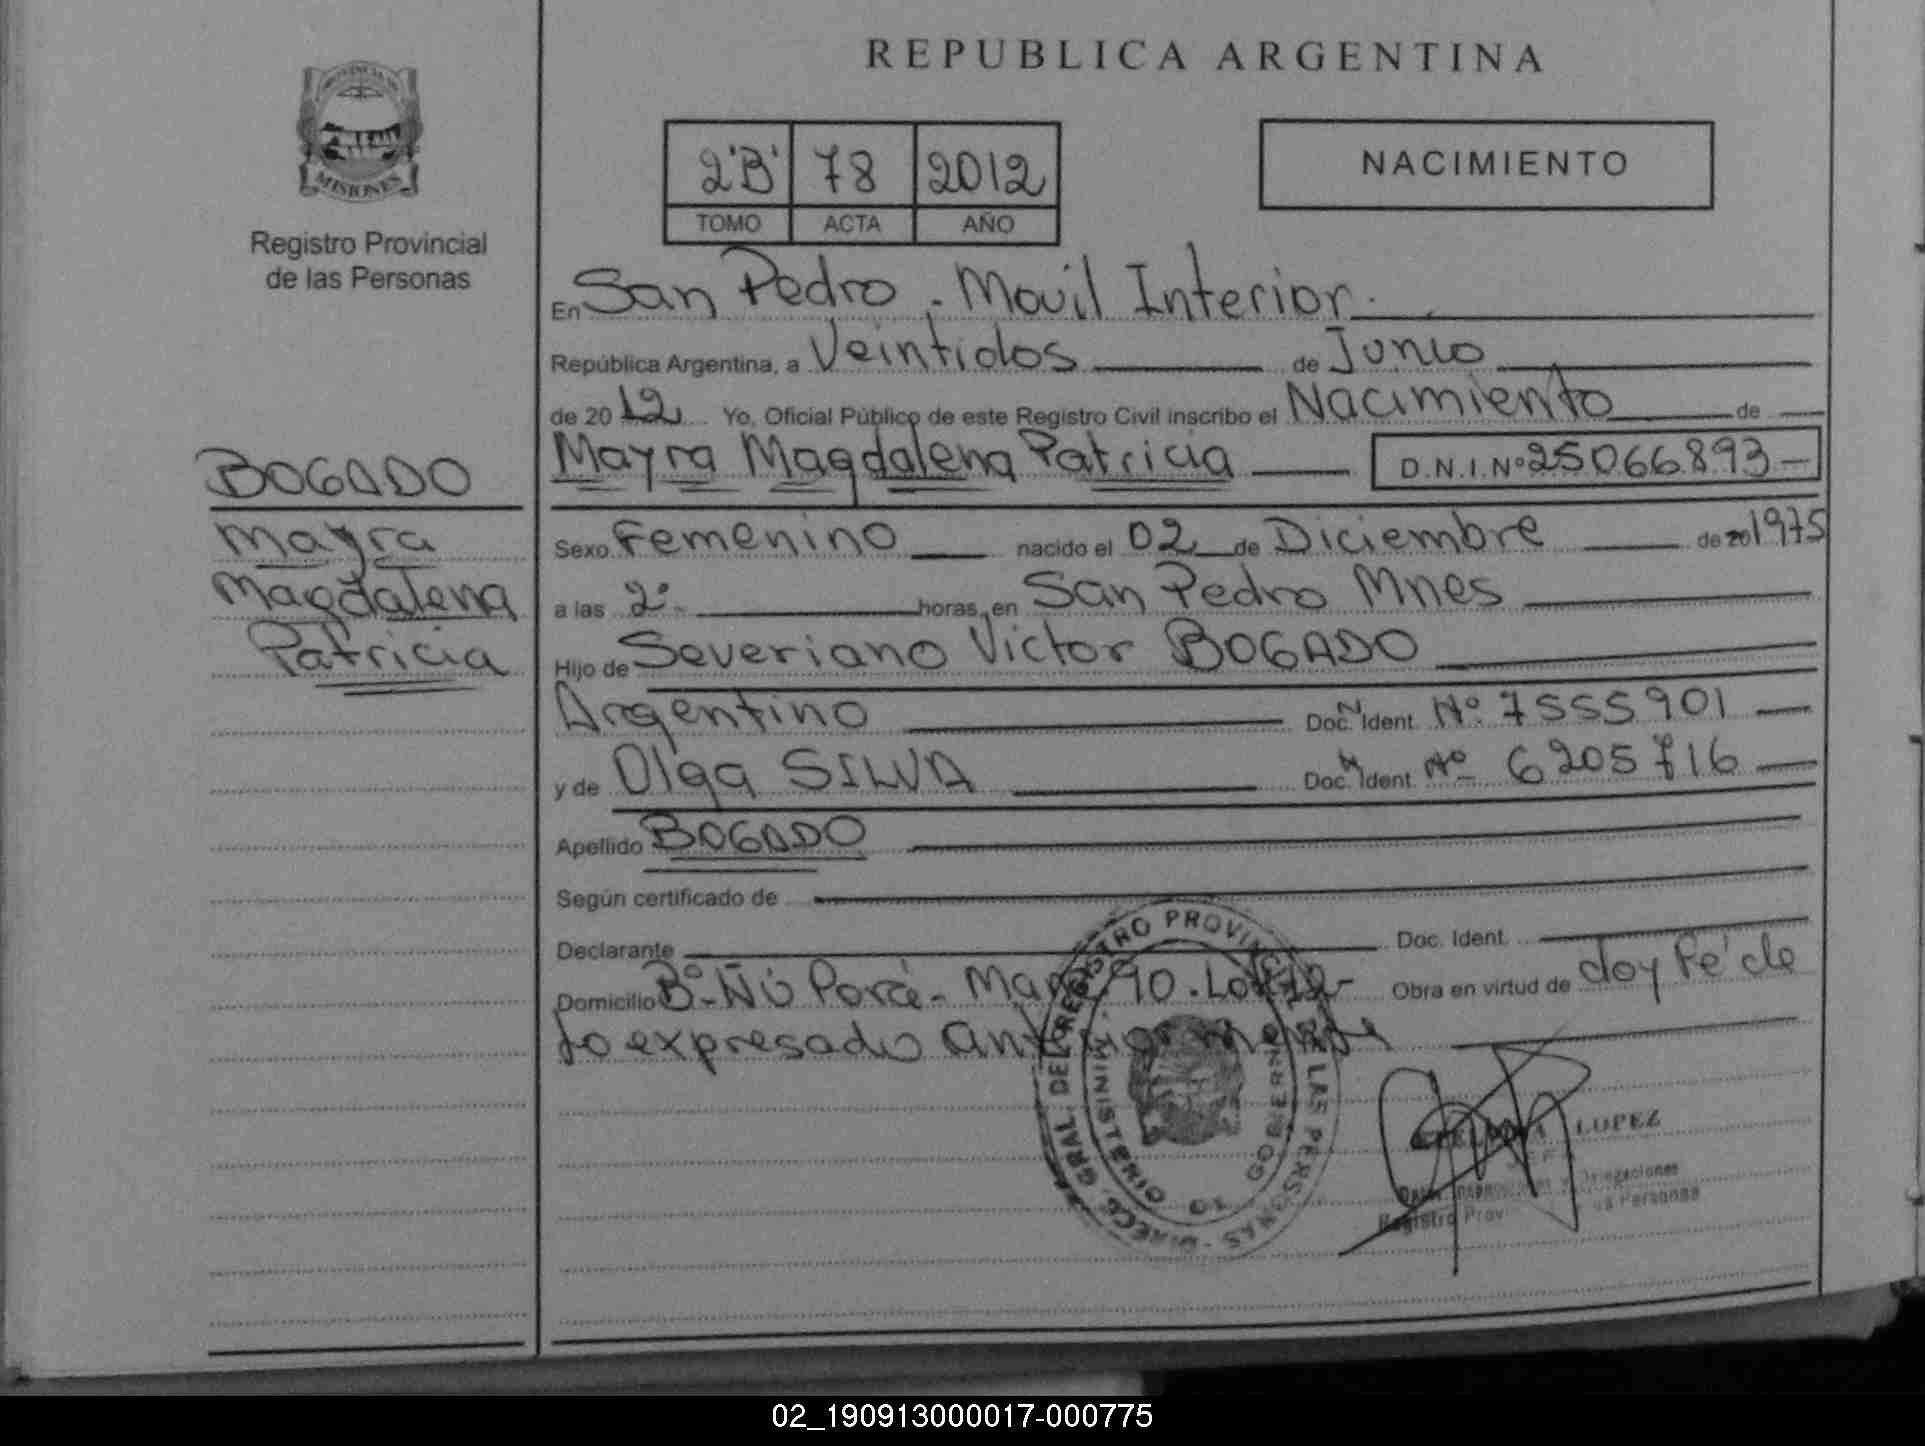 REPUBLICA ARGENTINA
PROVINCIA DE
MISIONES
Registro Provincial
de las Personas
2'B' 78 2012
TOMO ACTA AÑO
NACIMIENTO
En San Pedro . Movil Interior.
República Argentina, a Veintidos de Junio
de 20 12 Yo, Oficial Público de este Registro Civil inscribo el Nacimiento de
Mayra Magdalena Patricia D.N.I.Nº 25066893
BOGADO
Mayra
Magdalena
Patricia
Sexo Femenino nacido el 02 de Diciembre de 20 1975
a las 2º horas, en San Pedro Mnes
Hijo de Severiano Victor BOGADO
Argentino Doc. Ident. Nº 7555901
y de Olga SILVA Doc. Ident. Nº 6205716
Apellido BOGADO
Según certificado de
Declarante Doc. Ident.
Domicilio Bº- Ñú Porá - Manz 90 . Lote 12 - Obra en virtud de doy Fé de
lo expresado anteriormente
DIRECC. GRAL. DEL REGISTRO PROVINCIAL DE LAS PERSONAS
MINISTERIO DE GOBIERNO
LOPEZ
JEFE
Delegaciones
Registro Prov Personas
02_190913000017-000775